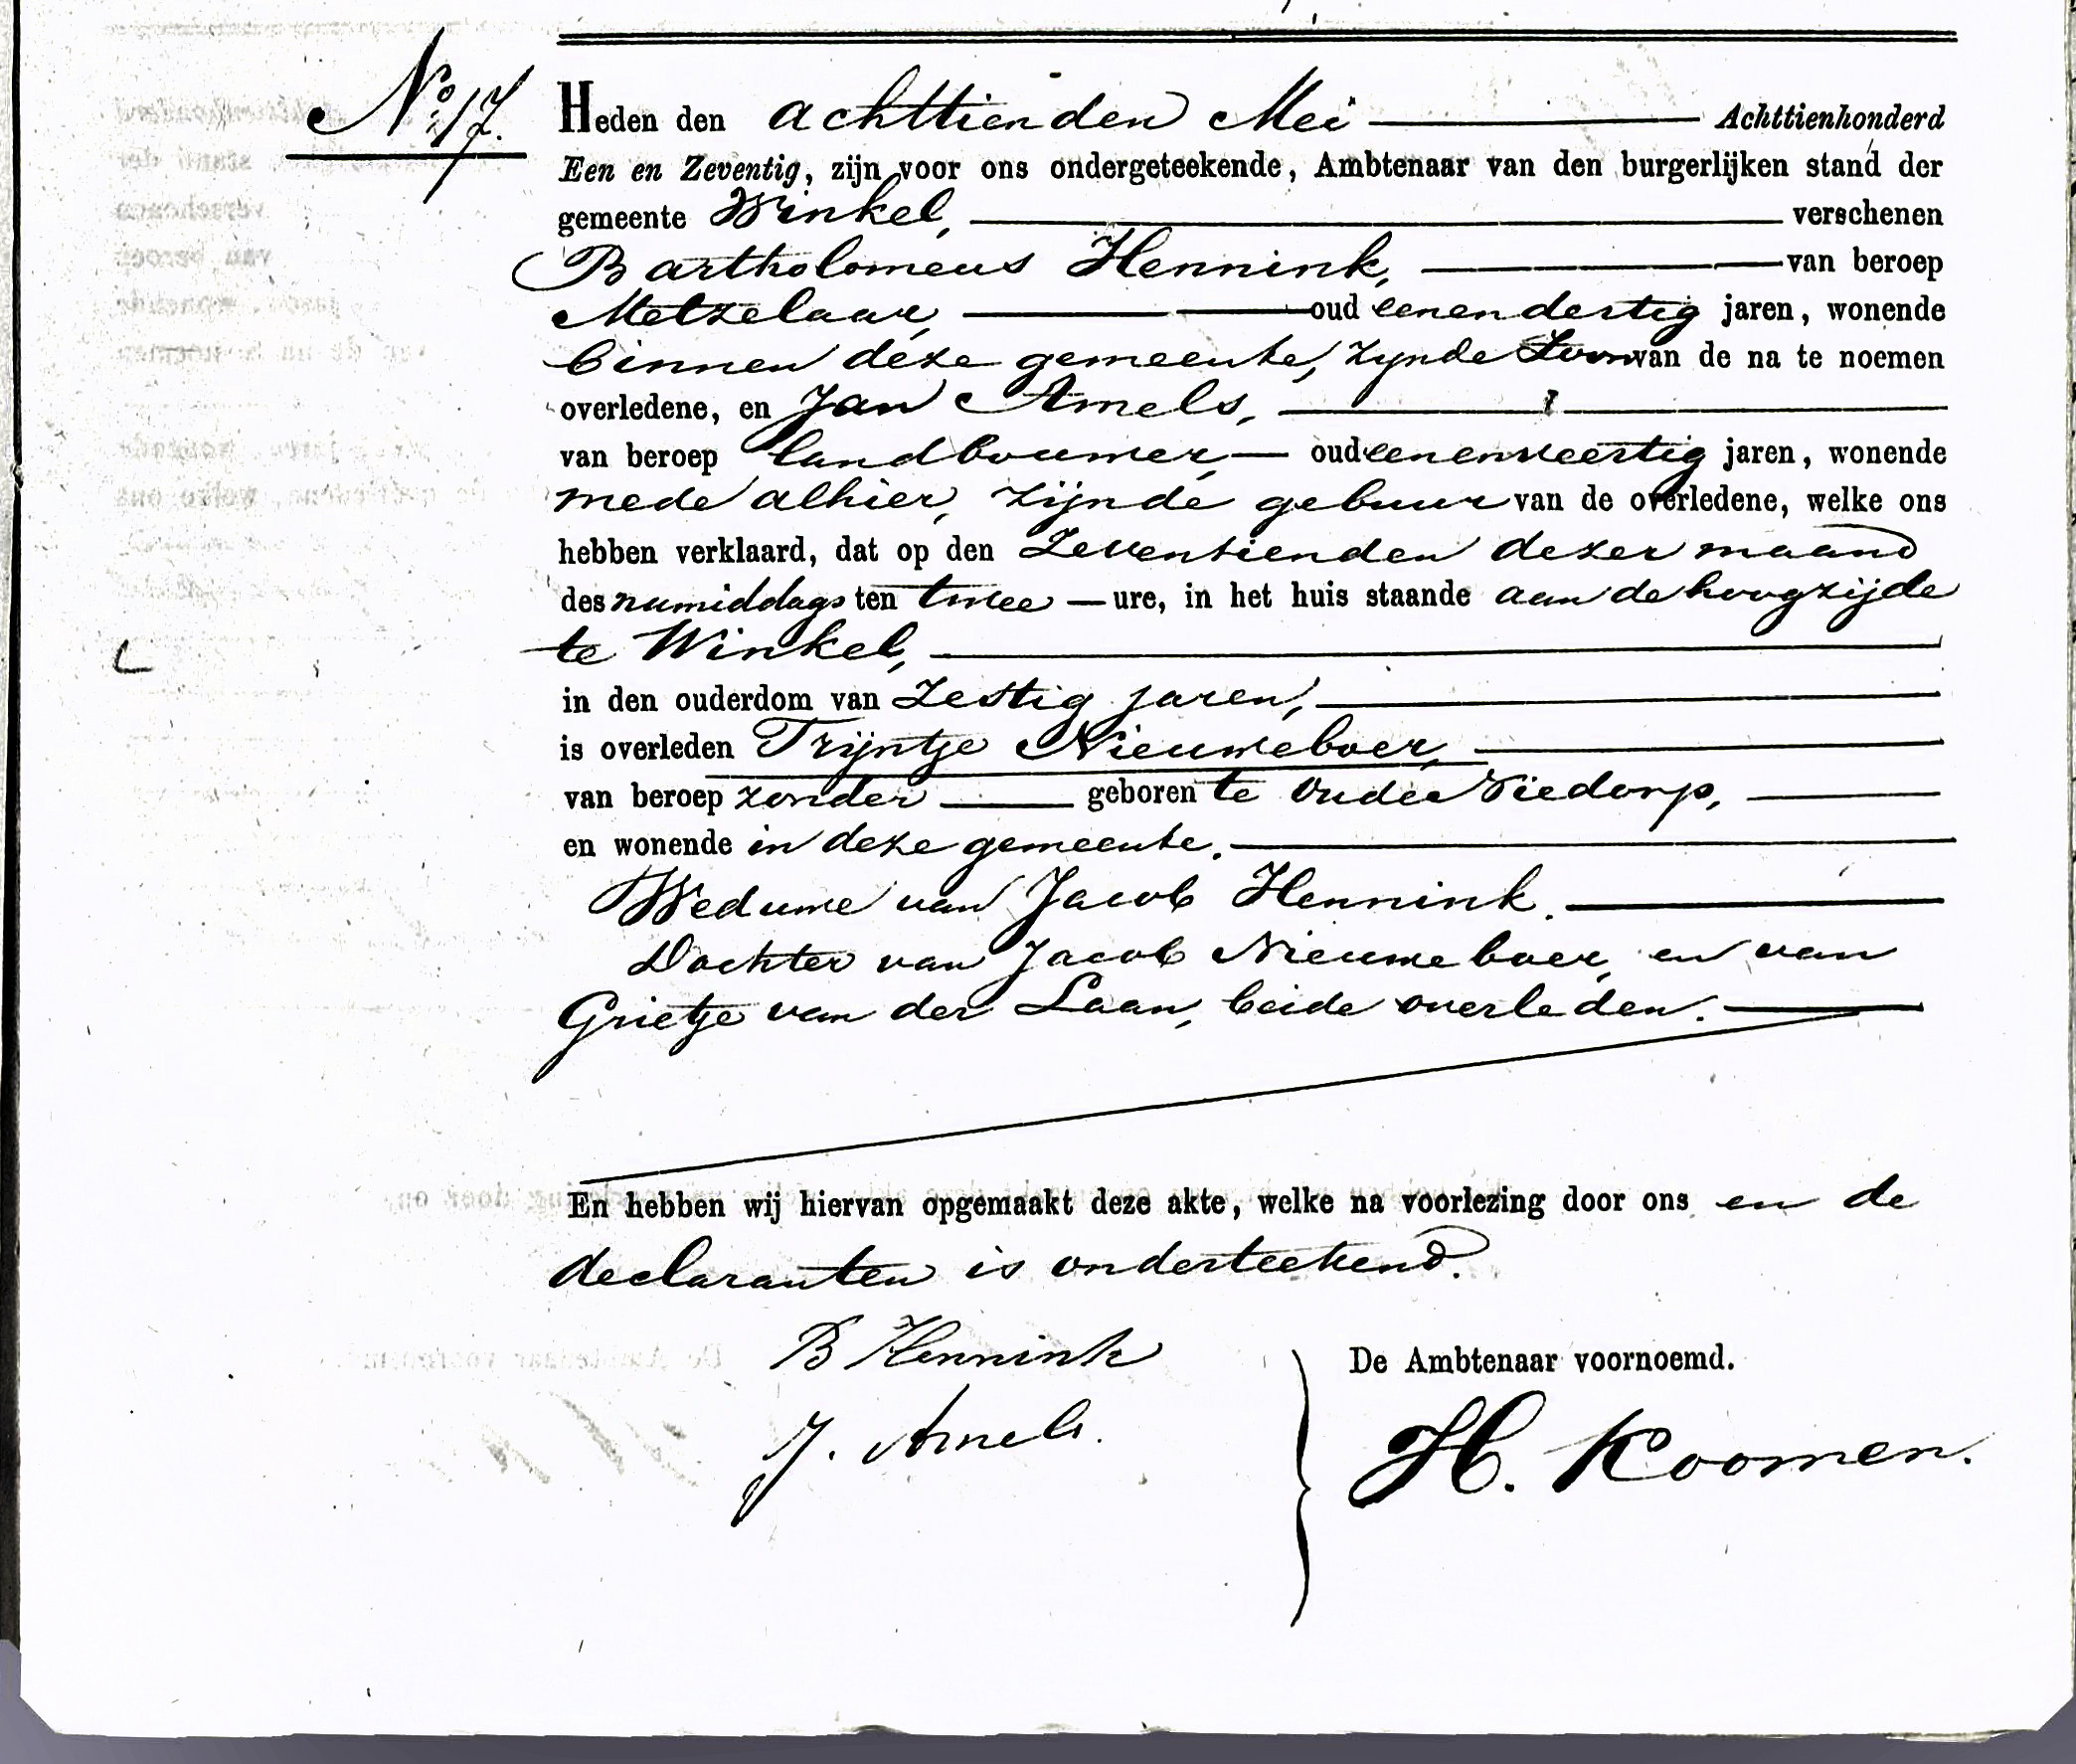 No. 17.
Heden den achttienden Mei Achttienhonderd
Een en Zeventig, zijn voor ons ondergeteekende, Ambtenaar van den burgerlijken stand der
gemeente Winkel, verschenen
Bartholomeus Hennink, van beroep
Metzelaar, oud eenendertig jaren, wonende
binnen deze gemeente, zynde Zoon van de na te noemen
overledene, en Jan Amels,
van beroep landbouwer, oud eenenveertig jaren, wonende
mede alhier, zijnde gebuur van de overledene, welke ons
hebben verklaard, dat op den Zeventienden dezer maand
des namiddags ten twee ure, in het huis staande aan de hoogzijde
te Winkel,
in den ouderdom van Zestig jaren,
is overleden Trijntje Nieuweboer,
van beroep zonder geboren te Oude Niedorp,
en wonende in deze gemeente.
Weduwe van Jacob Hennink.
Dochter van Jacob Nieuweboer, en van
Grietje van der Laan, beide overleden.
En hebben wij hiervan opgemaakt deze akte, welke na voorlezing door ons en de
declaranten is onderteekend.
B Hennink
De Ambtenaar voornoemd.
J. Amels.
H. Koomen.